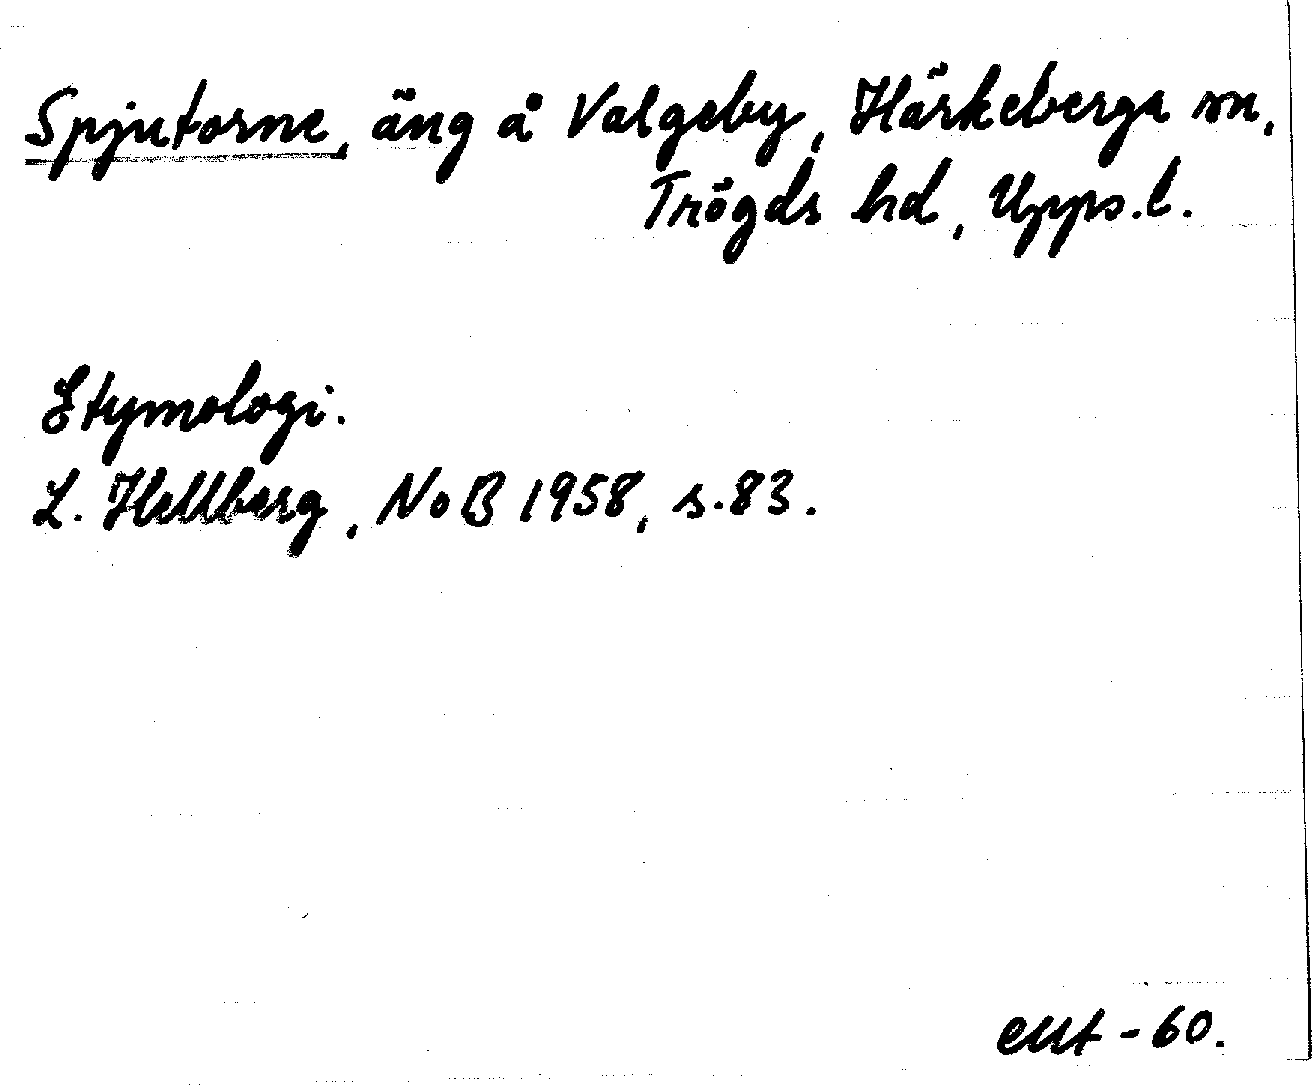 Spjutorne, äng å Valgeby, Härkeberga sn,
Trögds hd, Upps.l.
Etymologi.
L. Hellberg, NoB 1958, s.83.
eut -60.